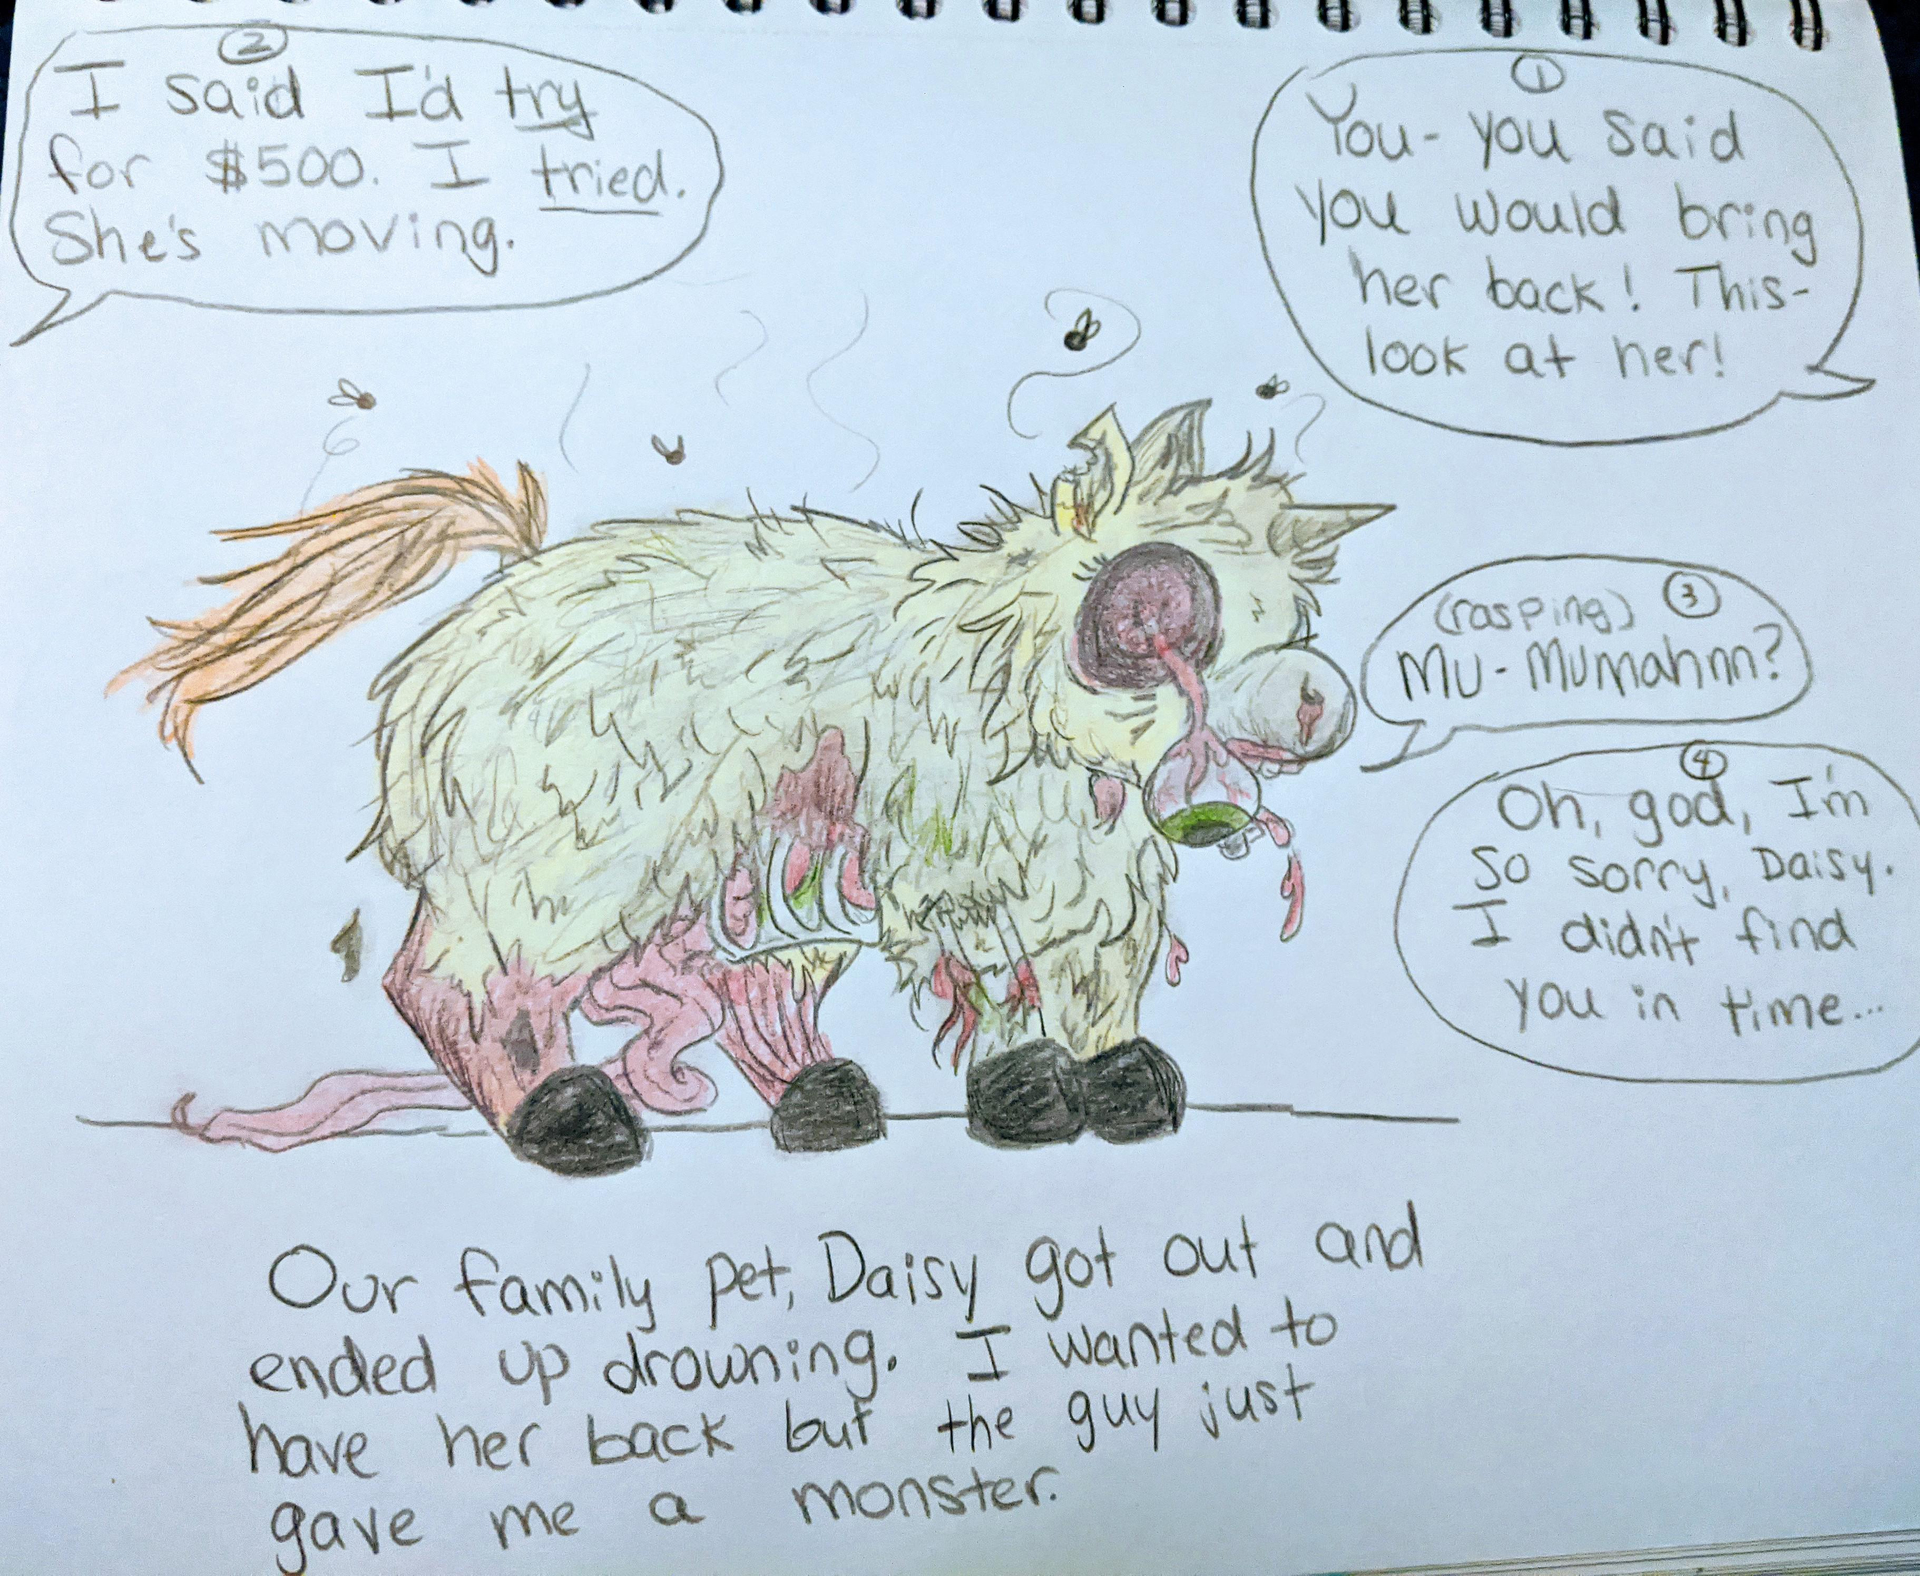 ②
I said I'd try
for $500. I tried.
She's moving.
①
You- you said
you would bring
her back! This-
look at her!
(rasping) ③
Mu- Mumahnn?
④
Oh, god, I'm
so sorry, Daisy.
I didn't find
you in time...
Our family pet, Daisy got out and
ended up drowning. I wanted to
have her back but the guy just
gave me a monster.